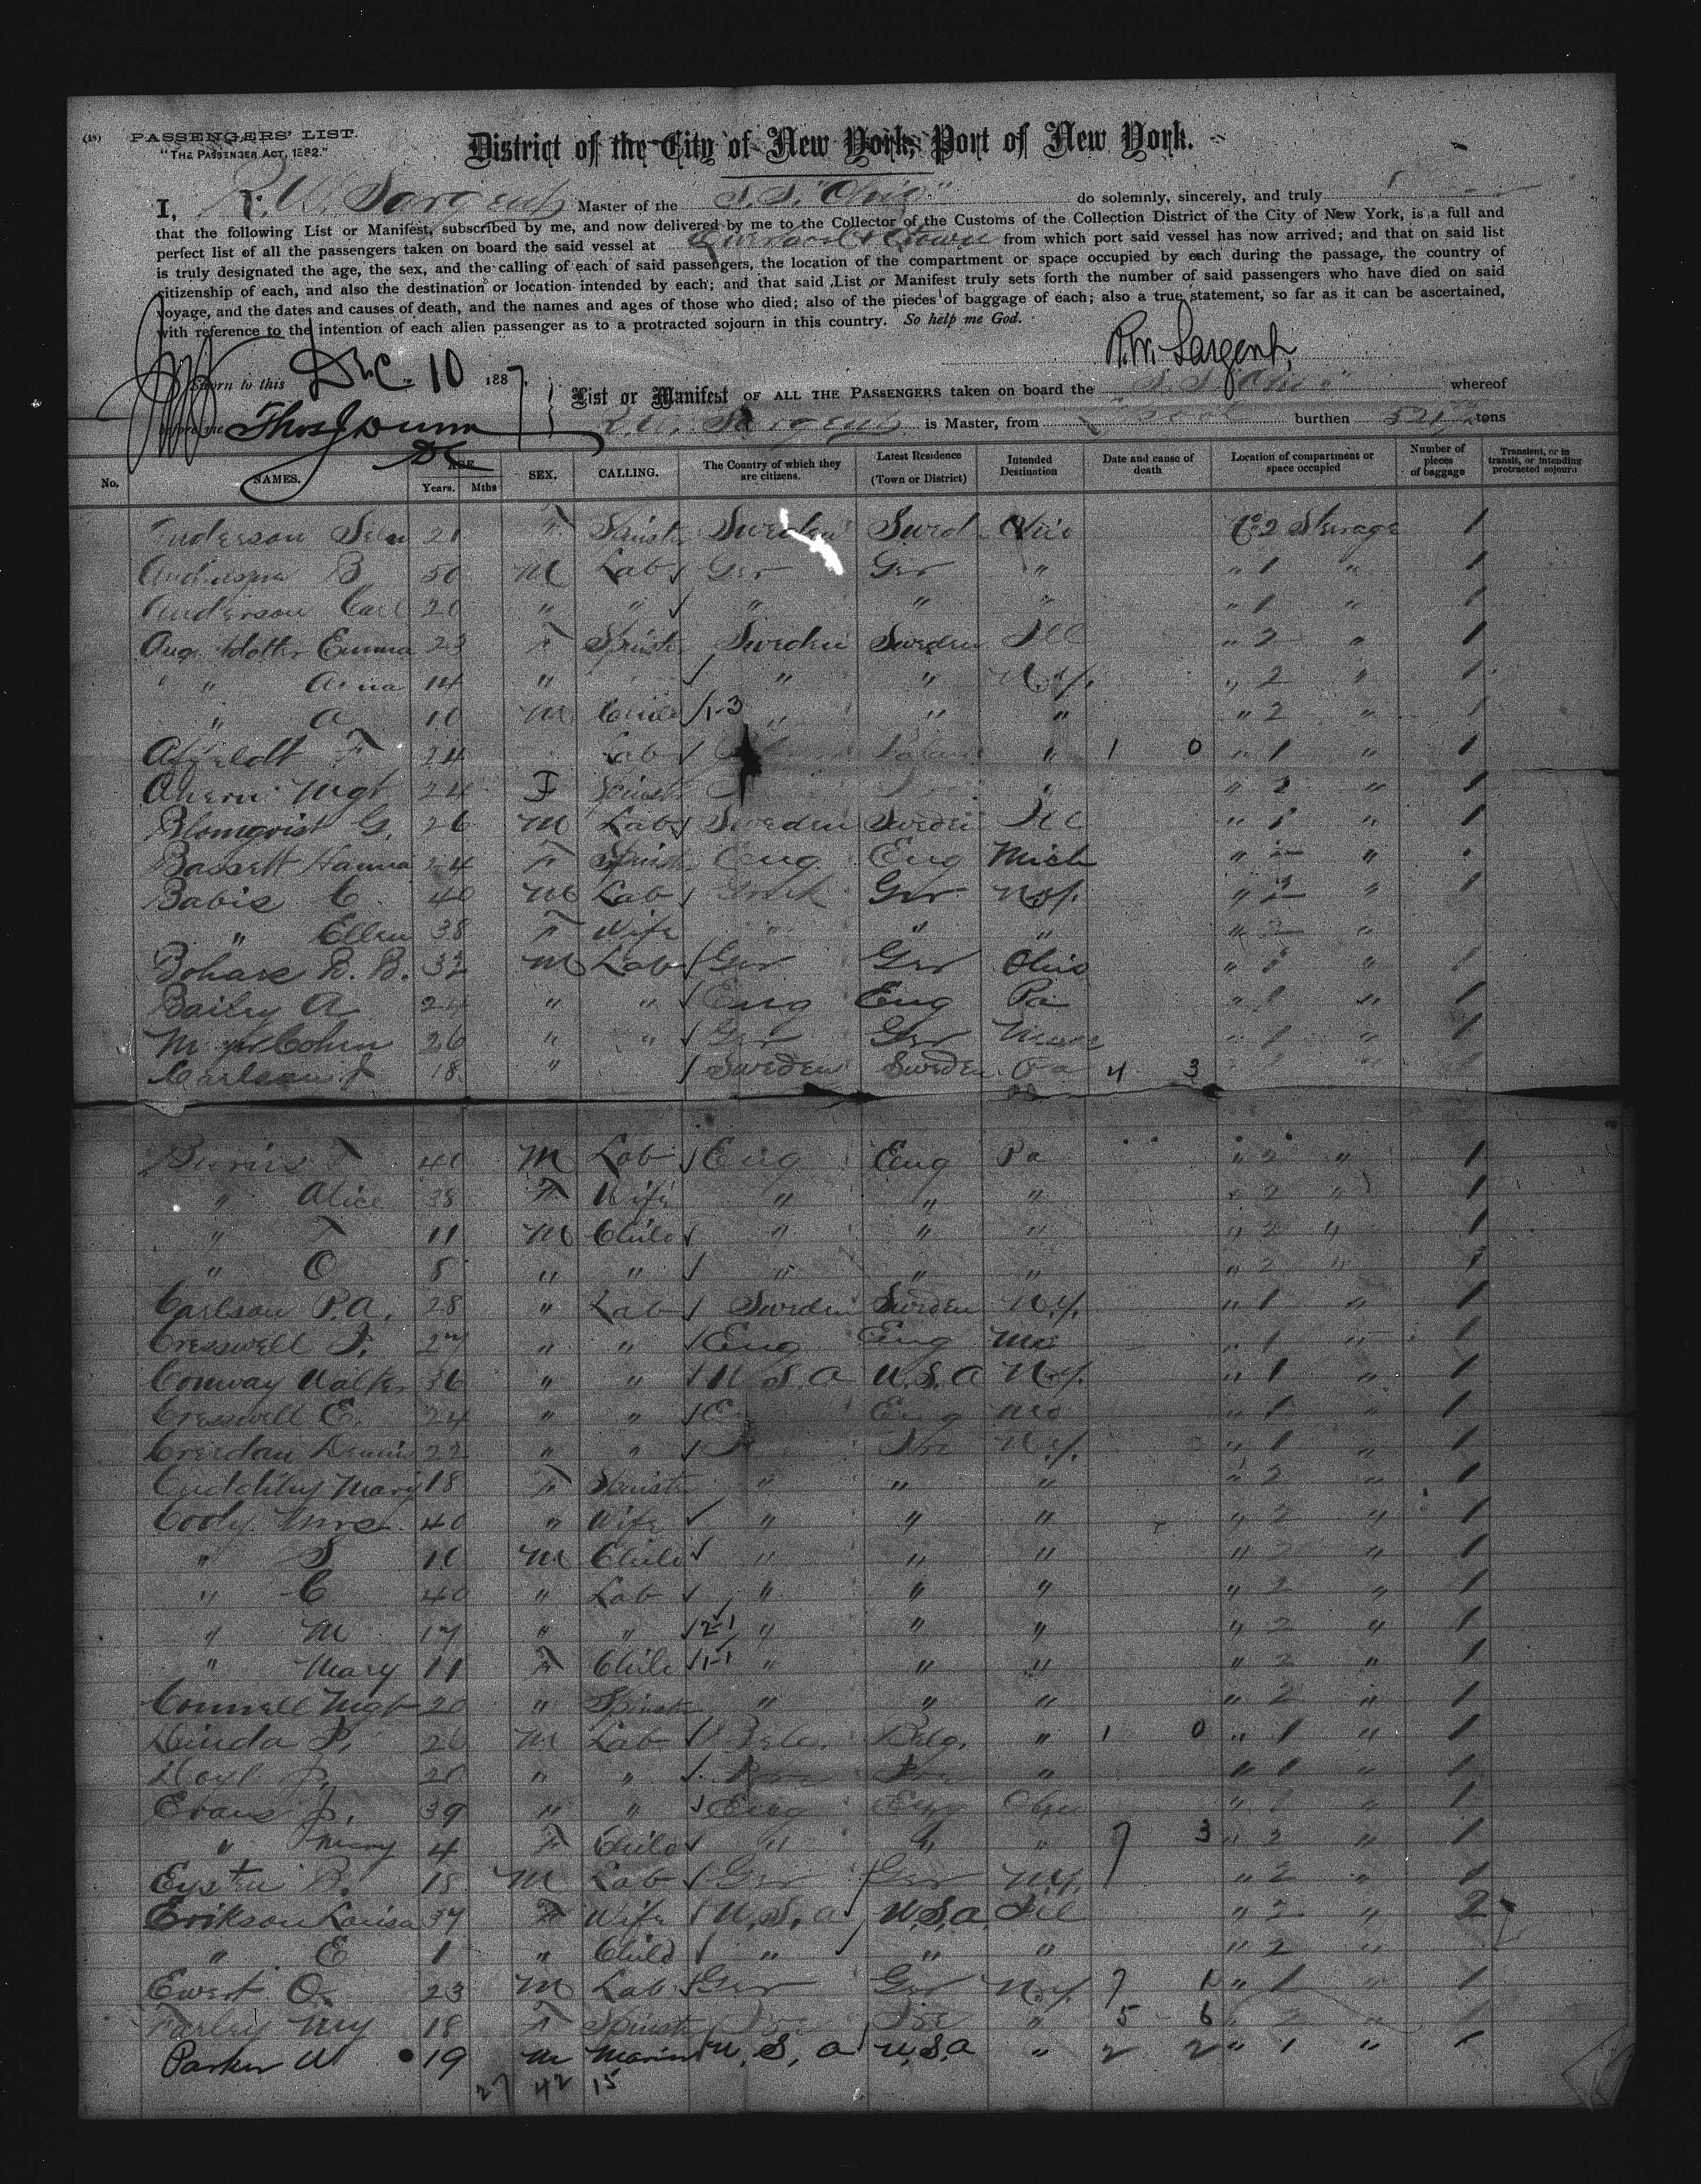 (18) PASSENGERS' LIST.
"THE PASSENGER ACT, 1882."
District of the City of New York, Port of New York.
I, R. W. Sargent Master of the S. S. "Ohio" do solemnly, sincerely, and truly
that the following List or Manifest, subscribed by me, and now delivered by me to the Collector of the Customs of the Collection District of the City of New York, is a full and
perfect list of all the passengers taken on board the said vessel at from which port said vessel has now arrived; and that on said list
is truly designated the age, the sex, and the calling of each of said passengers, the location of the compartment or space occupied by each during the passage, the country of
citizenship of each, and also the destination or location intended by each; and that said List or Manifest truly sets forth the number of said passengers who have died on said
voyage, and the dates and causes of death, and the names and ages of those who died; also of the pieces of baggage of each; also a true statement, so far as it can be ascertained,
with reference to the intention of each alien passenger as to a protracted sojourn in this country. So help me God.
R. W. Sargent,
Sworn to this Dec. 10 1887.
List or Manifest OF ALL THE PASSENGERS taken on board the S. S. "Ohio" whereof
before me Thos J Dunn R. W. Sargent is Master, from burthen tons
DC
No. NAMES. AGE Years. Mths SEX. CALLING. The Country of which they are citizens. Latest Residence (Town or District) Intended Destination Date and cause of death Location of compartment or space occupied Number of pieces of baggage Transient, or in transit, or intending protracted sojourn
Anderson 21 F Spinstr Sweden Swed Ohio 2 Steerage 1
B 50 M Lab Ger Ger " " 1 " 1
Anderson Carl 20 " " " " " " 1 " 1
Emma 23 F Spinstr Sweden Sweden Ill " 2 " 1
" " Anna 14 " " " N.Y. " 2 " 1
" A 10 M Child 1-3 " " " " 2 " 1
F 24 Lab " 1 0 " 1 " 1
Ahern Mgt 24 F Spinstr " " 2 " 1
Blomqvist G. 26 M Lab Sweden Sweden Ill " 1 " 1
Bassett Hanna 24 F Spinstr Eng Eng Mich " "
Babis C 40 M Lab Ger N.Y. " 2 " 1
" Ellen 38 F Wife " " " " "
B. B. 32 M Lab Ger Ger Ohio " 1 " 1
Bailey A 24 " " Eng Eng Pa " 1 " 1
Cohen 26 " " Ger Ger " 1 " 1
Carlson J 18 " Sweden Sweden Pa 4 3
40 M Lab Eng Eng Pa " 2 " 1
" Alice 38 F Wife " " " " 2 " 1
" T 11 M Child " " " " 2 " 1
" O 8 " " " " " " 2 " 1
Carlson P. A. 28 " Lab Sweden Sweden N.Y. " 1 " 1
Cresswell J. 27 " " Eng Eng Mo " 1 " 1
Conway Walter 36 " " U. S. A U. S. A N.Y. " 1 " 1
Cresswell E. 24 " " Eng Mo " 1 " 1
Creedan Dennis 22 " " Ire N.Y. " 1 " 1
Cuddihy Mary 18 F Spinstr " " " " 2 " 1
Cody Mrs 40 " Wife " " " " 2 " 1
" S 10 M Child " " " " 2 " 1
" C 40 " Lab " " " " 2 " 1
" M 17 " " 2-1 " " " " 2 " 1
" Mary 11 F Child 1-1 " " " " 2 " 1
Connell Mgt 20 " Spinstr " " " " 2 " 1
Dinda P. 26 M Lab Belg. Belg. " 1 0 " 1 " 1
20 " " Ire " " 1 " 1
Evans J. 39 " " Eng Eng Ohio " " 1
" Mary 4 F Child " " " 7 3 " 2 " 1
B. 18 M Lab Ger Ger N.Y. " 2 " 1
Erikson Louisa 37 F Wife U. S. A U. S. A Ill " 2 " 2
" E 1 " Child " " " " 2 "
Ewert O. 23 M Lab Ger Ger N.Y. 7 1 " 1 " 1
Farley My 18 F Spinstr Ire Ire " 5 - 6 2 " 1
Parker W 19 M Marin U. S. A U. S. A " 2 2 " 1 " 1
27 42 15